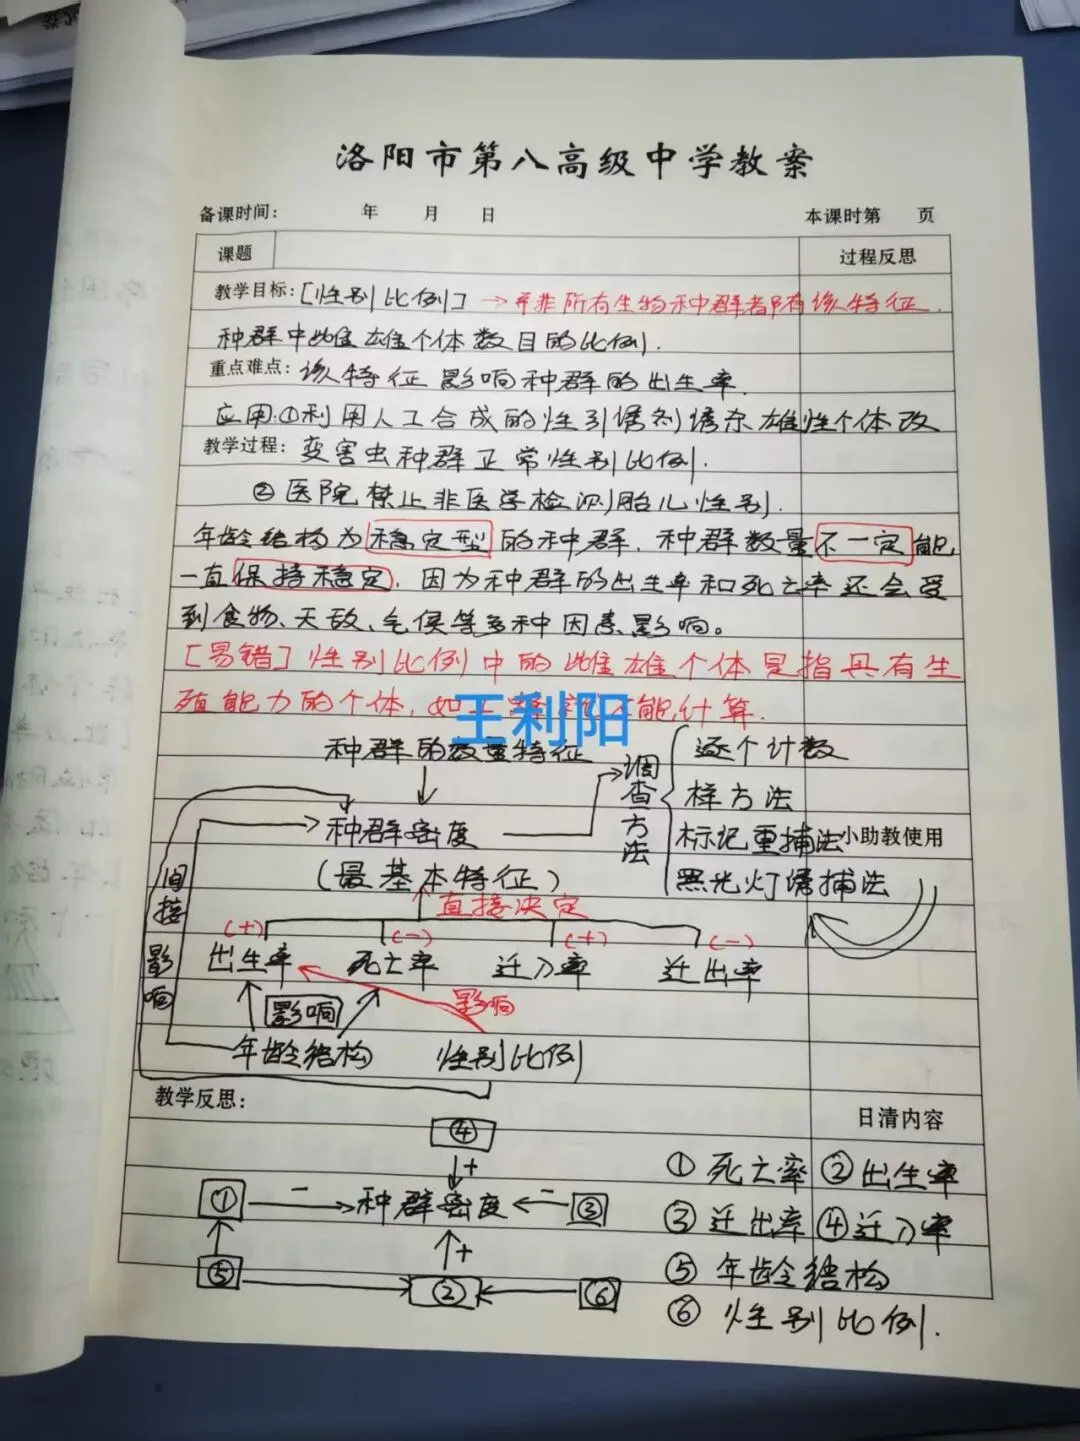 洛阳市第八高级中学教案
备课时间: 年 月 日 本课时第 页
课题 过程反思
教学目标: [性别比例] → 并非所有生物种群都有该特征.
种群中雌雄个体数目的比例.
重点难点: 该特征影响种群的出生率.
应用:①利用人工合成的性引诱剂诱杀雄性个体改
教学过程: 变害虫种群正常性别比例.
② 医院禁止非医学检测胎儿性别.
年龄结构为稳定型的种群,种群数量不一定能
一直保持稳定,因为种群的出生率和死亡率还会受
到食物、天敌、气候等多种因素影响。
[易错] 性别比例中的雌雄个体是指具有生
殖能力的个体,如 能计算.
王利阳
种群的数量特征
种群密度
(最基本特征)
调查方法
逐个计数
样方法
标记重捕法
黑光灯诱捕法
小助教使用
直接决定
(+) (-) (+) (-)
出生率 死亡率 迁入率 迁出率
间接影响
影响 影响
年龄结构 性别比例
教学反思: 日清内容
④
+
① - 种群密度 - ③
+
⑤ ② ⑥
① 死亡率 ② 出生率
③ 迁出率 ④ 迁入率
⑤ 年龄结构
⑥ 性别比例.